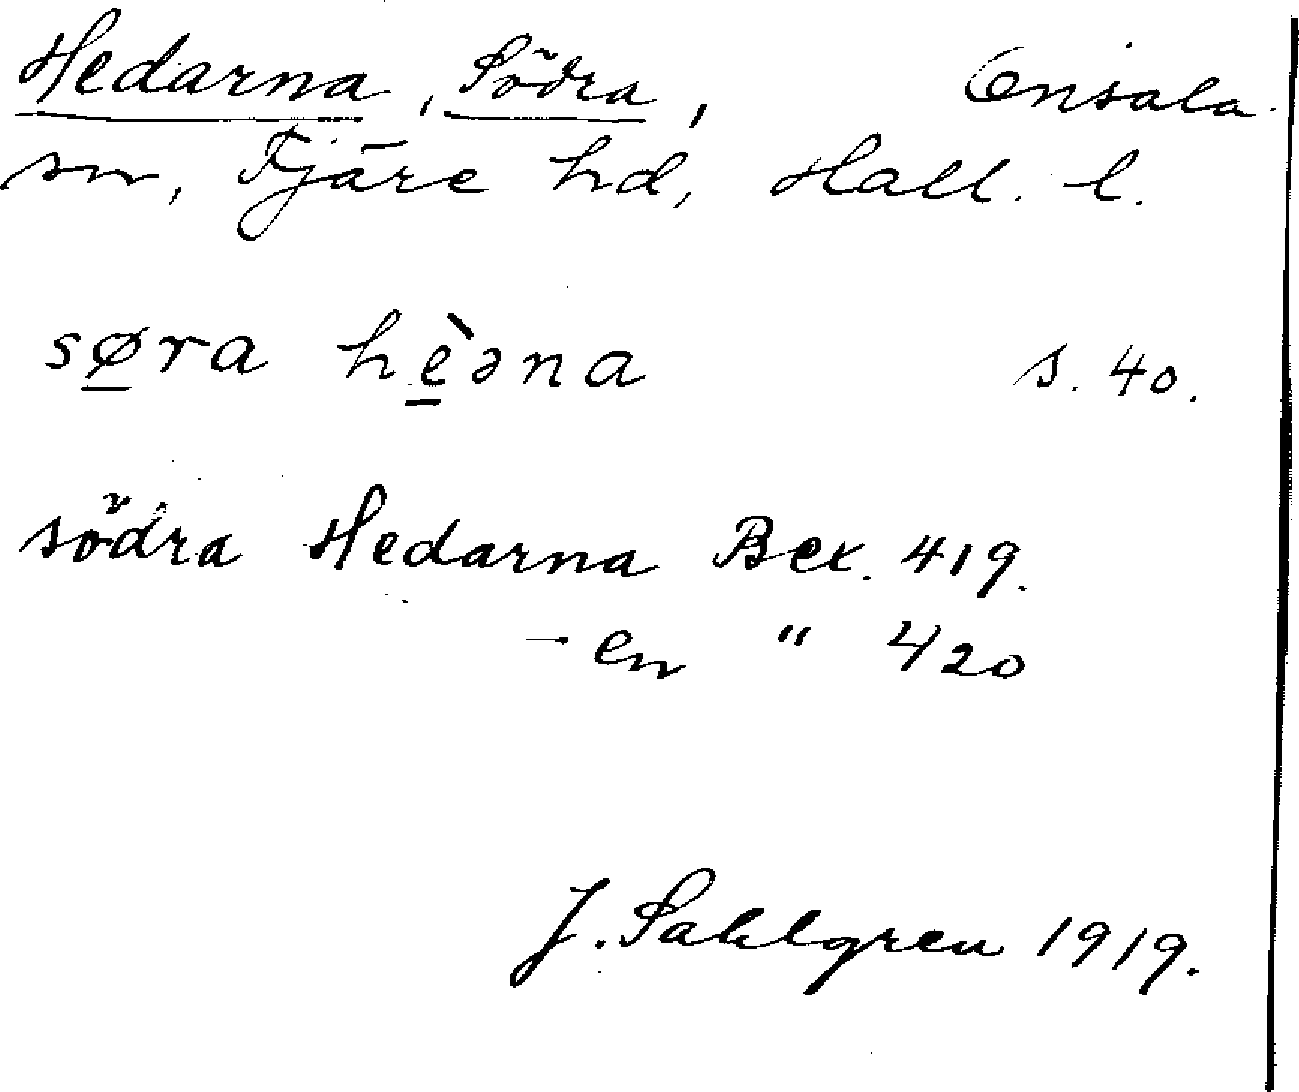 Hedarna, Södra, Onsala
sn, Fjäre hd, Hall. l.
søra hèəna s. 40.
södra Hedarna Bex. 419.
- en " 420
J. Sahlgren 1919.